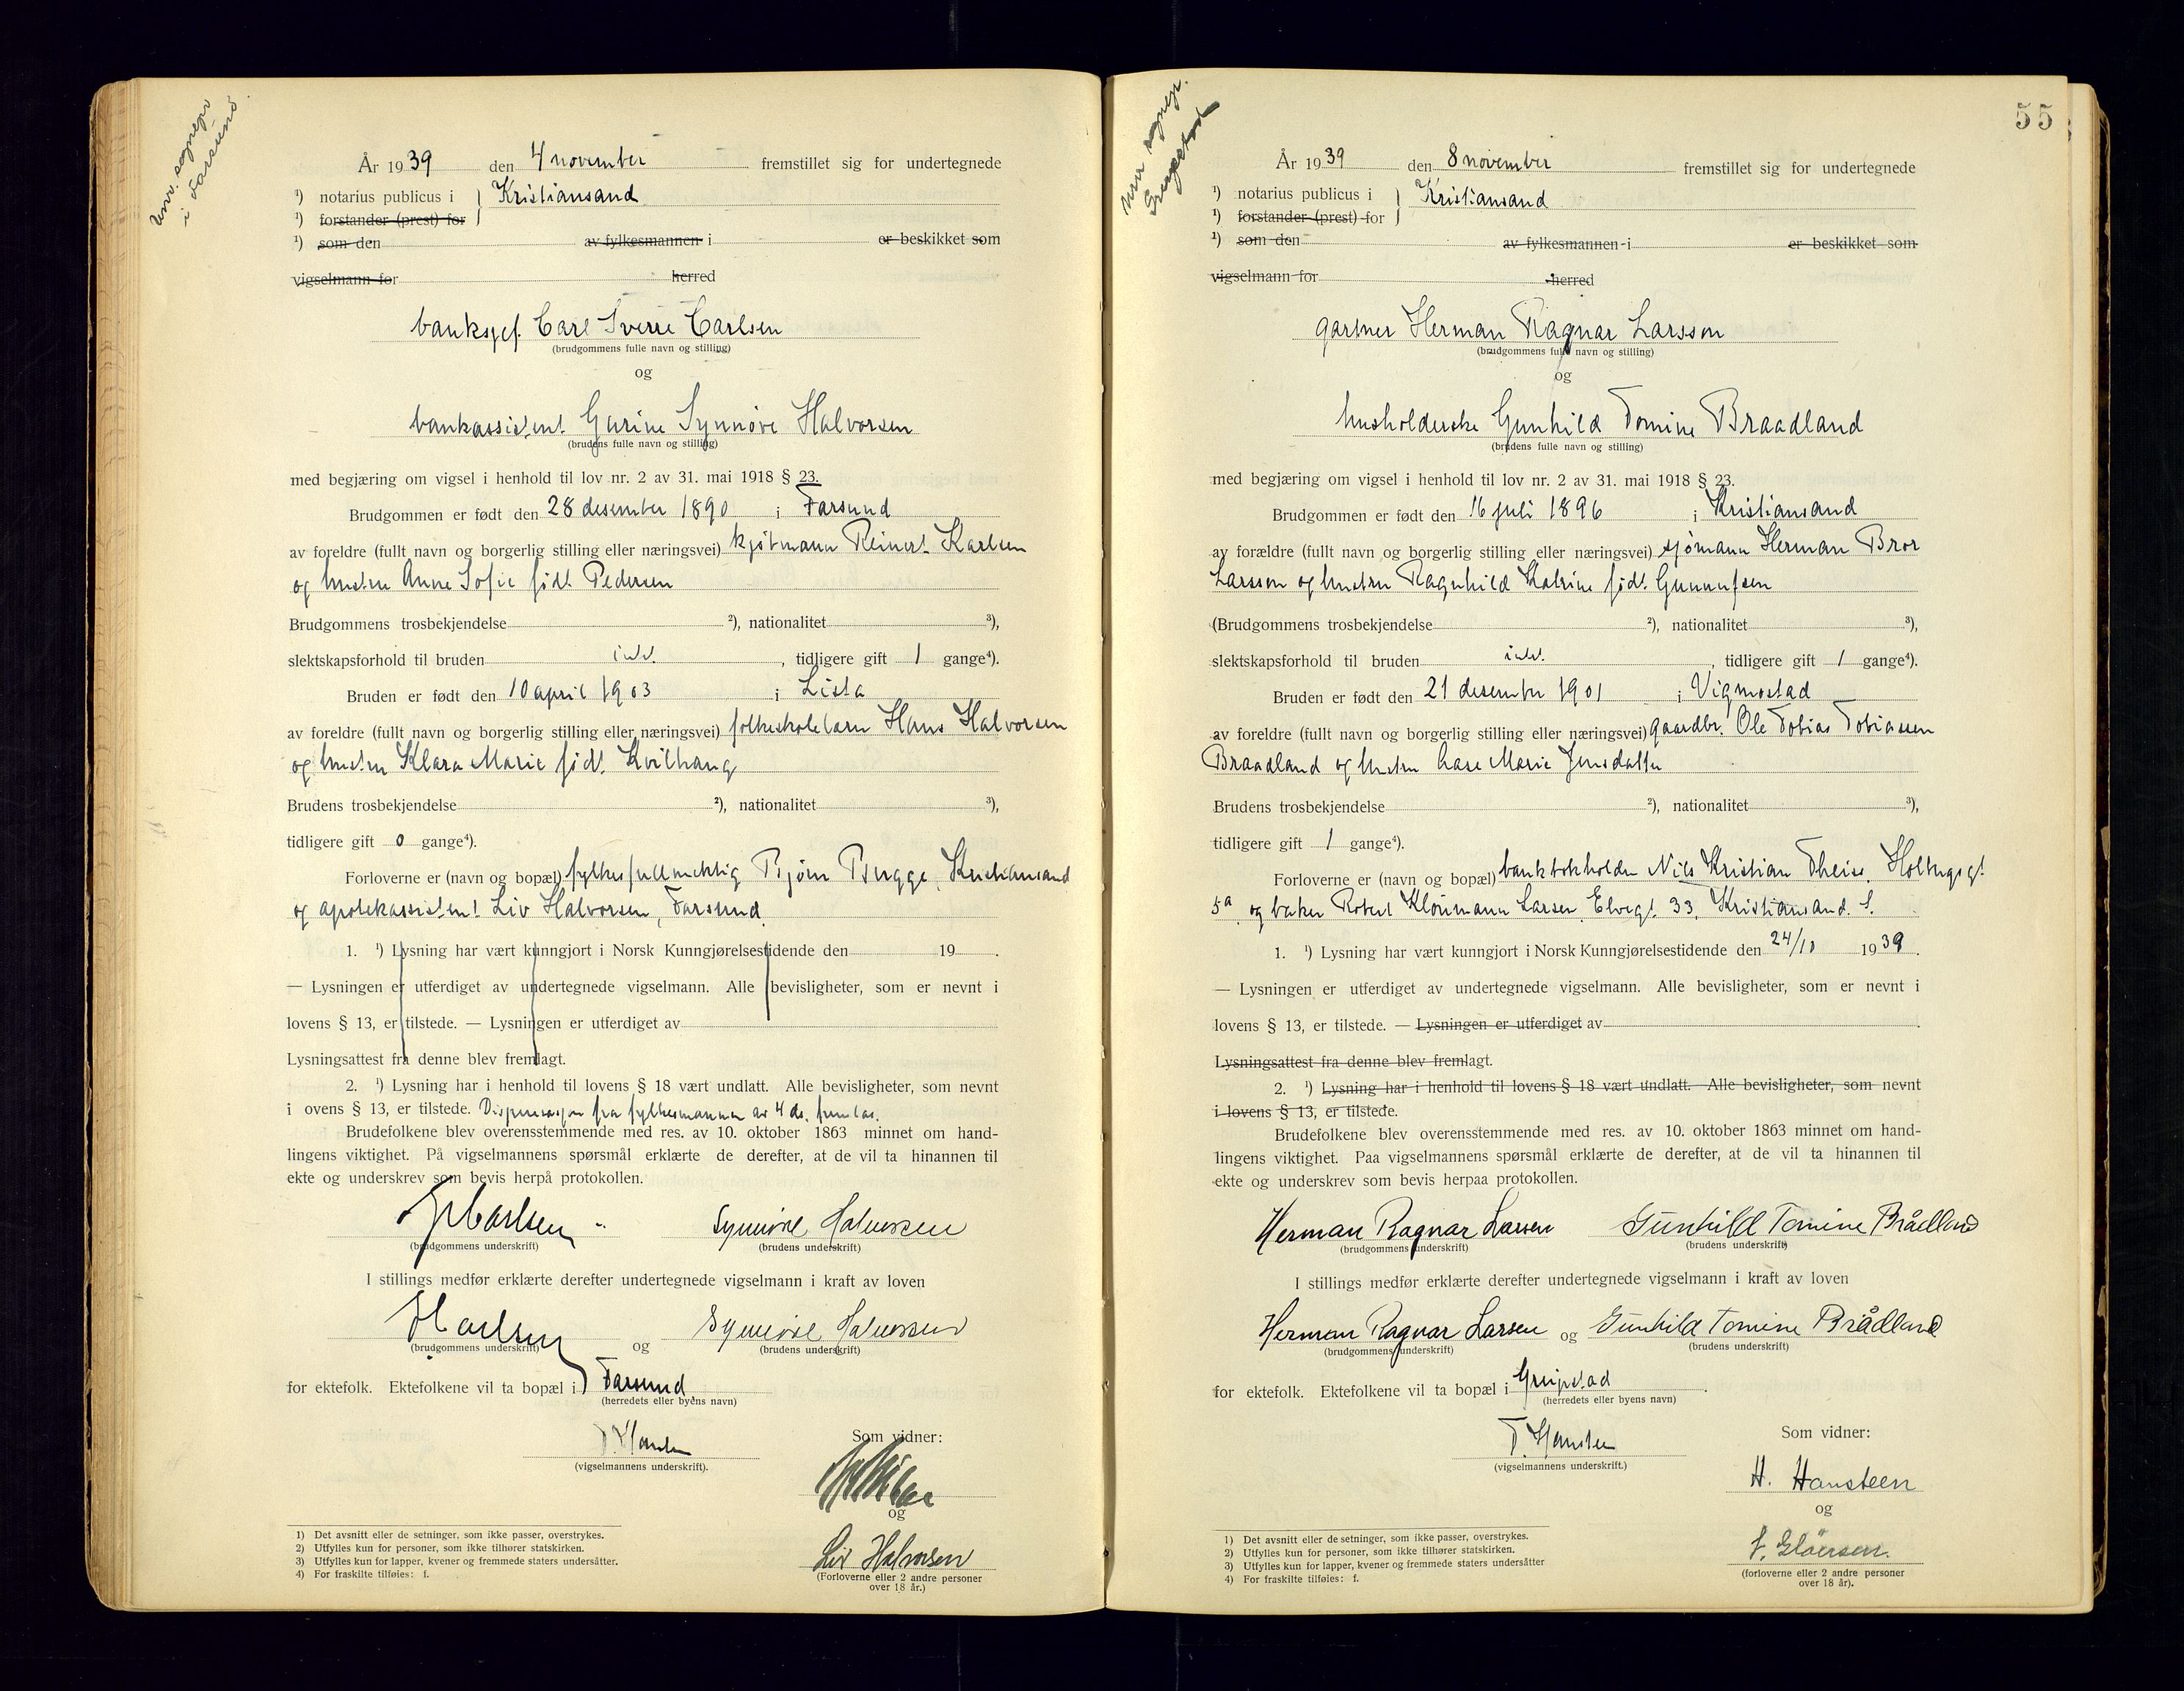 i Farsund
År 1939 den 4 november fremstillet sig for undertegnede
¹) notarius publicus i } Kristiansand
¹) forstander (prest) for
¹) som den av fylkesmannen i er beskikket som
vigselmann for herred
banksjef. Carl Sverre Carlsen
(brudgommens fulle navn og stilling)
og
bankassistent Gurine Synnøve Halvorsen
(brudens fulle navn og stilling)
med begjæring om vigsel i henhold til lov nr. 2 av 31. mai 1918 § 23.
Brudgommen er født den 28 desember 1890 i Farsund
av foreldre (fullt navn og borgerlig stilling eller næringsvei) kjøtmann Reinert Karlsen
og hustru Anne Sofie født Pedersen
Brudgommens trosbekjendelse ²), nationalitet ³),
slektskapsforhold til bruden intet. , tidligere gift 1 gange⁴).
Bruden er født den 10 april 1903 i Lista
av foreldre (fullt navn og borgerlig stilling eller næringsvei) folkeskolelærer Hans Halvorsen
og hustru Klara Marie født Kvilhaug
Brudens trosbekjendelse ²), nationalitet ³),
tidligere gift 0 gange⁴).
Forloverne er (navn og bopæl) fylkesfullmektig Bjørn Bugge, Kristiansand
og apotekassistent Liv Halvorsen, Farsund.
1. ¹) Lysning har vært kunngjort i Norsk Kunngjørelsestidende den 19 .
— Lysningen er utferdiget av undertegnede vigselmann. Alle bevisligheter, som er nevnt i
lovens § 13, er tilstede. — Lysningen er utferdiget av
Lysningsattest fra denne blev fremlagt.
2. ¹) Lysning har i henhold til lovens § 18 vært undlatt. Alle bevisligheter, som nevnt
i ovens § 13, er tilstede. Dispensasjon fra fylkesmannen av 4 ds. fremlas.
Brudefolkene blev overensstemmende med res. av 10. oktober 1863 minnet om hand-
lingens viktighet. På vigselmannens spørsmål erklærte de derefter, at de vil ta hinannen til
ekte og underskrev som bevis herpå protokollen.
Carlsen Synnøve Halvorsen
(brudgommens underskrift) (brudens underskrift)
I stillings medfør erklærte derefter undertegnede vigselmann i kraft av loven
Carlsen og Synnøve Halvorsen
(brudgommens underskrift) (brudens underskrift)
for ektefolk. Ektefolkene vil ta bopæl i Farsund.
(herredets eller byens navn)
Som vidner:
(vigselmannens underskrift).
og
Liv Halvorsen
(Forloverne eller 2 andre personer
over 18 år.)
1) Det avsnitt eller de setninger, som ikke passer, overstrykes.
2) Utfylles kun for personer, som ikke tilhører statskirken.
3) Utfylles kun for lapper, kvener og fremmede staters undersåtter.
4) For fraskilte tilføies: f.
55
År 1939 den 8 november fremstillet sig for undertegnede
¹) notarius publicus i } Kristiansand
¹) forstander (prest) for
¹) som den av fylkesmannen i er beskikket som
vigselmann for herred
gartner Herman Ragnar Larsson
(brudgommens fulle navn og stilling)
og
husholderske Gunhild Tomine Braadland
(brudens fulle navn og stilling)
med begjæring om vigsel i henhold til lov nr. 2 av 31. mai 1918 § 23.
Brudgommen er født den 16 juli 1896 i Kristiansand
av forældre (fullt navn og borgerlig stilling eller næringsvei) sjømann Herman Bror
Larsson og hustru Ragnhild Katrine født Gunnufsen
(Brudgommens trosbekjendelse ²), nationalitet ³),
slektskapsforhold til bruden intet. , tidligere gift 1 gange⁴).
Bruden er født den 21 desember 1901 i Vigmostad
av foreldre (fullt navn og borgerlig stilling eller næringsvei) gaardbr. Ole Tobias Tobiassen
Braadland og hustru Lase Marie Jensdatter
Brudens trosbekjendelse ²), nationalitet ³),
tidligere gift 1 gange⁴).
Forloverne er (navn og bopæl) bankbokholder Nils Kristian Theiss, Holbergsgt
5a og baker Robert Kloumann Larsen, Elvegt. 33, Kristiansand. S.
1. ¹) Lysning har vært kunngjort i Norsk Kunngjørelsestidende den 24/10 1939.
— Lysningen er utferdiget av undertegnede vigselmann. Alle bevisligheter, som er nevnt i
lovens § 13, er tilstede. — Lysningen er utferdiget av
Lysningsattest fra denne blev fremlagt.
2. ¹) Lysning har i henhold til lovens § 18 vært undlatt. Alle bevisligheter, som nevnt
i lovens § 13, er tilstede.
Brudefolkene blev overensstemmende med res. av 10. oktober 1863 minnet om hand-
lingens viktighet. Paa vigselmannens spørsmål erklærte de derefter, at de vil ta hinannen til
ekte og underskrev som bevis herpaa protokollen.
Herman Ragnar Larsen Gunhild Tomine Brådland
(brudgommens underskrift) (brudens underskrift)
I stillings medfør erklærte derefter undertegnede vigselmann i kraft av loven
Herman Ragnar Larsen og Gunhild Tomine Brådland
(brudgommens underskrift) (brudens underskrift)
for ektefolk. Ektefolkene vil ta bopæl i Greipstad .
(herredets eller byens navn)
Som vidner:
(vigselmannens underskrift.)
H. Hansteen
og
(forloverne eller 2 andre personer
over 18 år).
1) Det avsnitt eller de setninger, som ikke passer, overstrykes.
2) Utfylles kun for personer, som ikke tilhører statskirken.
3) Utfylles kun for lapper, kvener og fremmede staters undersåtter
4) For fraskilte tilføies: f.